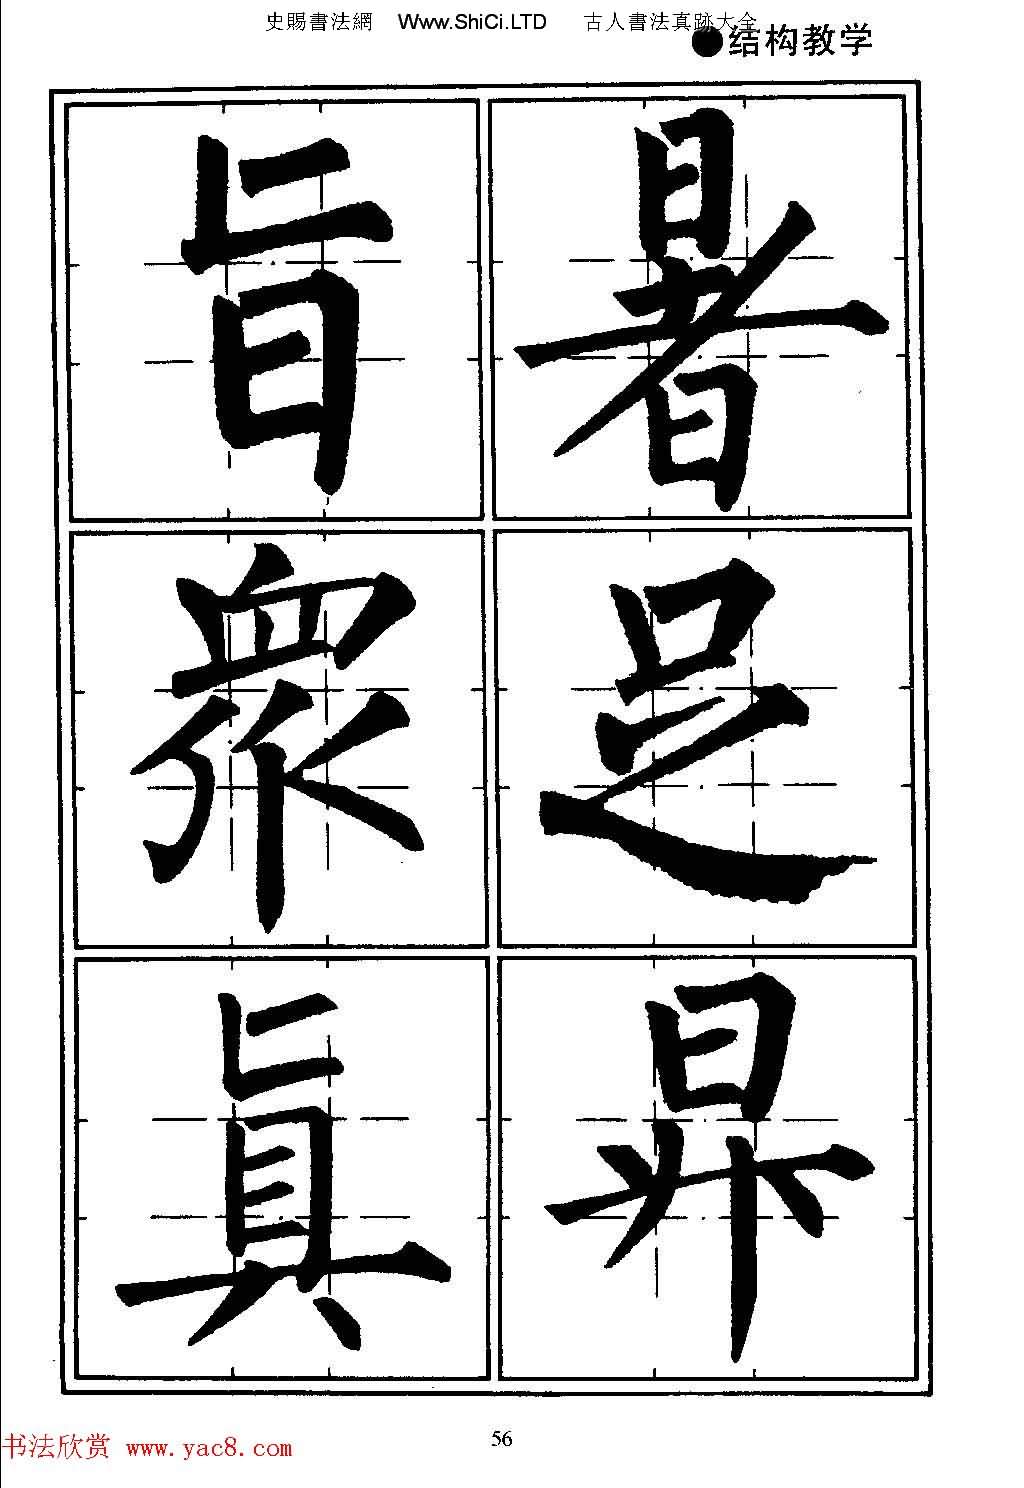 史賜書法網 Www.ShiCi.LTD 古人書法真跡大全
●结构教学
暑
足
昇
旨
衆
真
56
书法欣赏 www.yac8.com